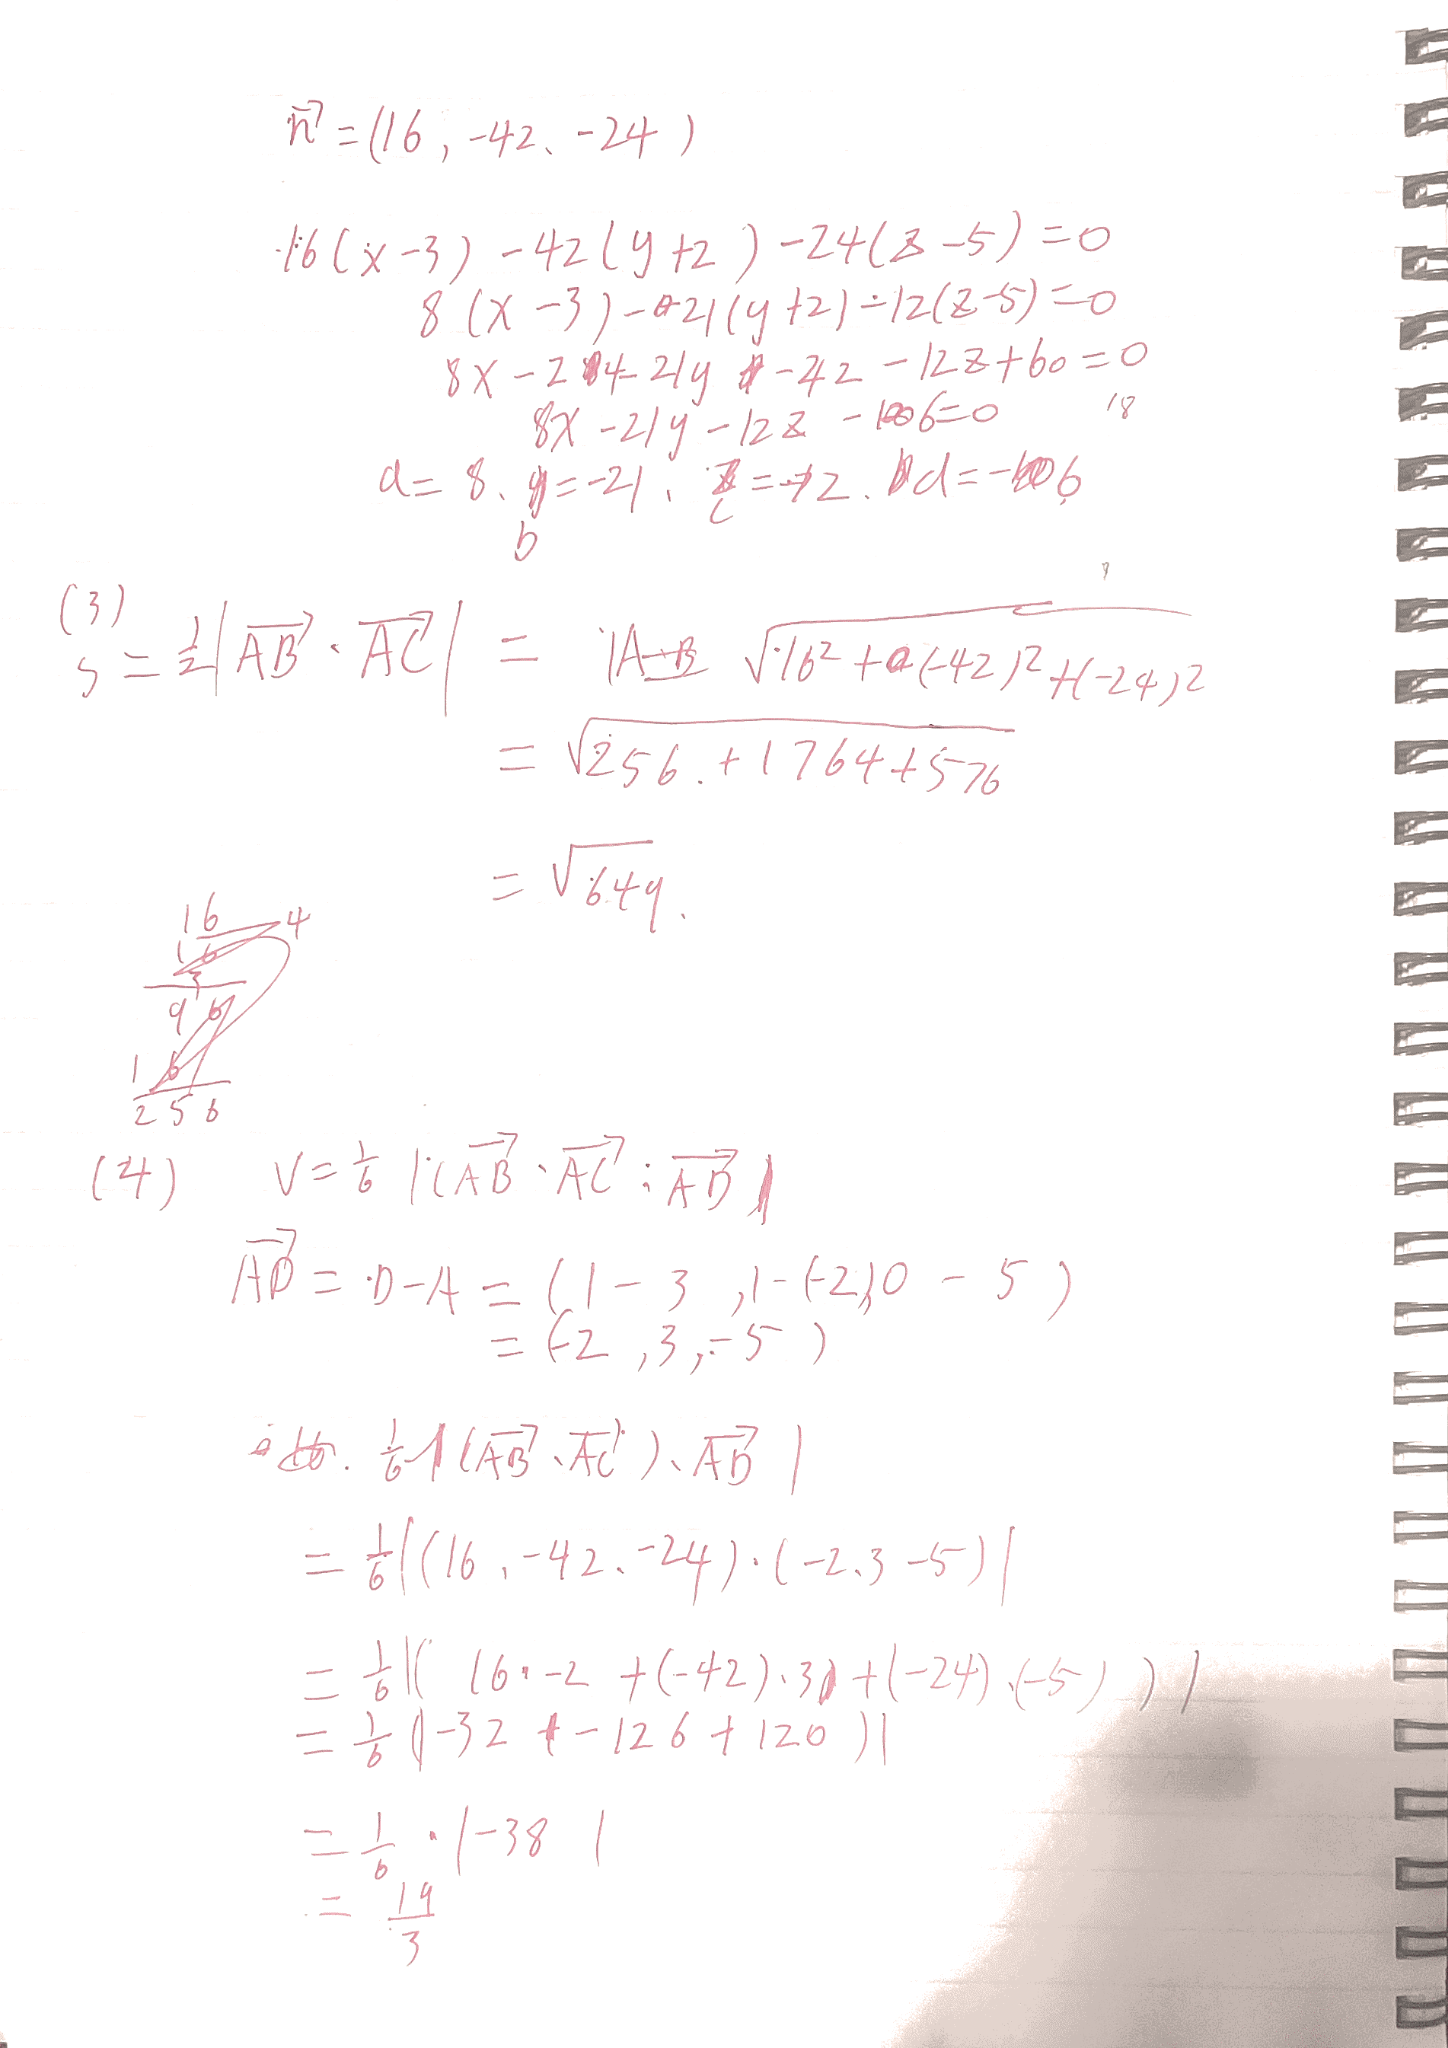 n⃗ = (16, -42, -24)
16(x-3) -42(y+2) -24(z-5) = 0
8(x-3) -21(y+2) -12(z-5) = 0
8x - 24 - 21y - 42 - 12z + 60 = 0
18
8x - 21y - 12z - 6 = 0
a = 8, b = -21, c = -12, d = -6
(3)
S = 1/2 |AB⃗ · AC⃗| = √16² + (-42)² + (-24)²
= √256 + 1764 + 576
= √649.
16 4
16
3
96
16
256
(4) V = 1/6 |(AB⃗ · AC⃗ ; AD⃗|
AD⃗ = D-A = (1-3, 1-(-2), 0-5)
= (-2, 3, -5)
1/6 |(AB⃗ · AC⃗) · AD⃗|
= 1/6 |(16, -42, -24)·(-2, 3 -5)|
= 1/6 |(16·-2 + (-42)·3 + (-24)·(-5))|
= 1/6 (|-32 -126 + 120)|
= 1/6 · |-38|
= 19/3